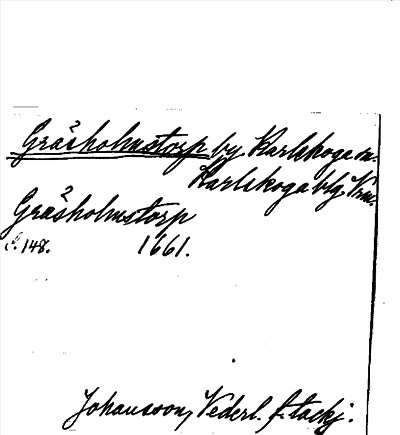 Gråsholmstorp by Karlskoga sn.
Karlskoga blg. Vrm.
Gråsholmstorp
s. 148. 1661.
Johansson, Vederl. f. tackj.